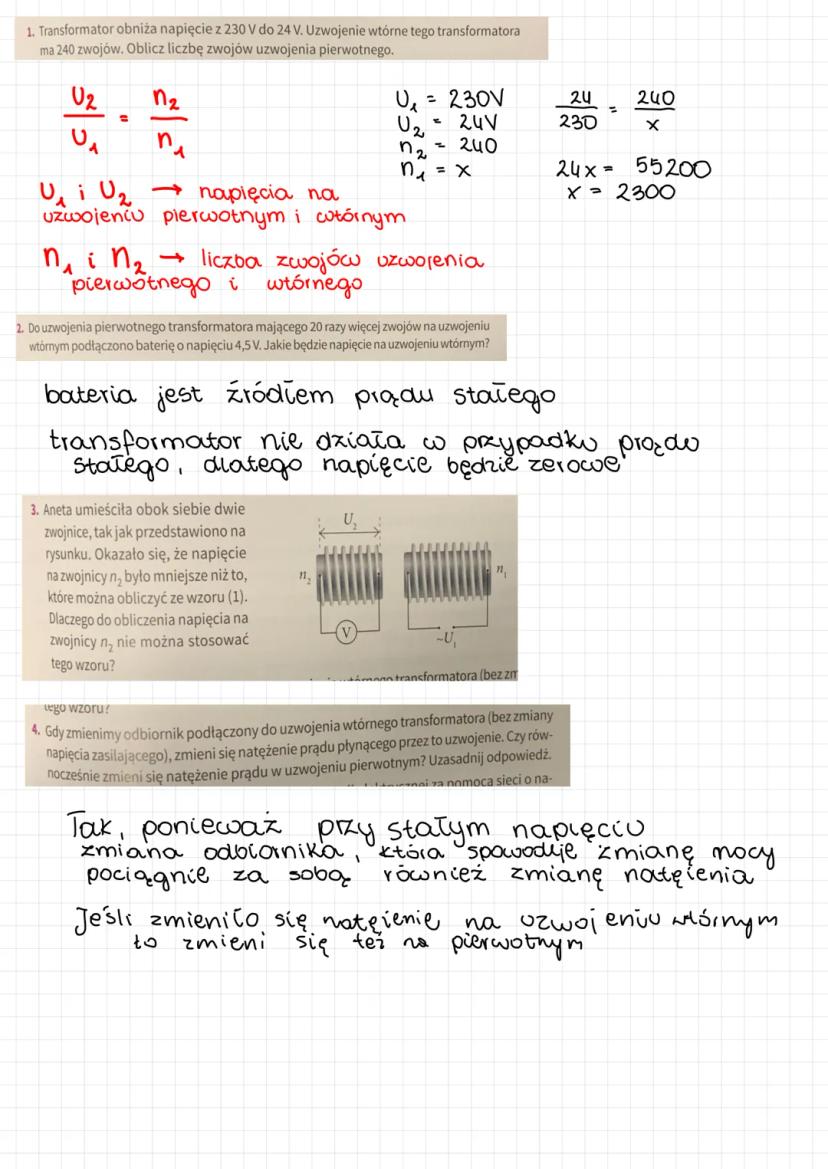 1. Transformator obniża napięcie z 230 V do 24 V. Uzwojenie wtórne tego transformatora
ma 240 zwojów. Oblicz liczbę zwojów uzwojenia pierwotnego.
U₂/U₁ = n₂/n₁
U₁ i U₂ → napięcia na
uzwojeniu pierwotnym i wtórnym
n₁ i n₂ → liczba zwojów uzwojenia
pierwotnego i wtórnego
U₁ = 230V
U₂ = 24V
n₂ = 240
n₁ = x
24/230 = 240/x
24x = 55200
x = 2300
2. Do uzwojenia pierwotnego transformatora mającego 20 razy więcej zwojów na uzwojeniu
wtórnym podłączono baterię o napięciu 4,5 V. Jakie będzie napięcie na uzwojeniu wtórnym?
bateria jest źródłem prądu stałego
transformator nie działa w przypadku prądu
stałego, dlatego napięcie będzie zerowe
3. Aneta umieściła obok siebie dwie
zwojnice, tak jak przedstawiono na
rysunku. Okazało się, że napięcie
na zwojnicy n₂ było mniejsze niż to,
które można obliczyć ze wzoru (1).
Dlaczego do obliczenia napięcia na
zwojnicy n₂ nie można stosować
tego wzoru?
U₂
n₂
n₁
V
~U₁
transformatora (bez zm
tego wzoru?
4. Gdy zmienimy odbiornik podłączony do uzwojenia wtórnego transformatora (bez zmiany
napięcia zasilającego), zmieni się natężenie prądu płynącego przez to uzwojenie. Czy rów-
nocześnie zmieni się natężenie prądu w uzwojeniu pierwotnym? Uzasadnij odpowiedź.
za pomocą sieci o na-
Tak, ponieważ przy stałym napięciu
zmiana odbiornika, która spowoduje zmianę mocy
pociągnie za sobą również zmianę natężenia
Jeśli zmieniło się natężenie na uzwojeniu wtórnym
to zmieni się też na pierwotnym